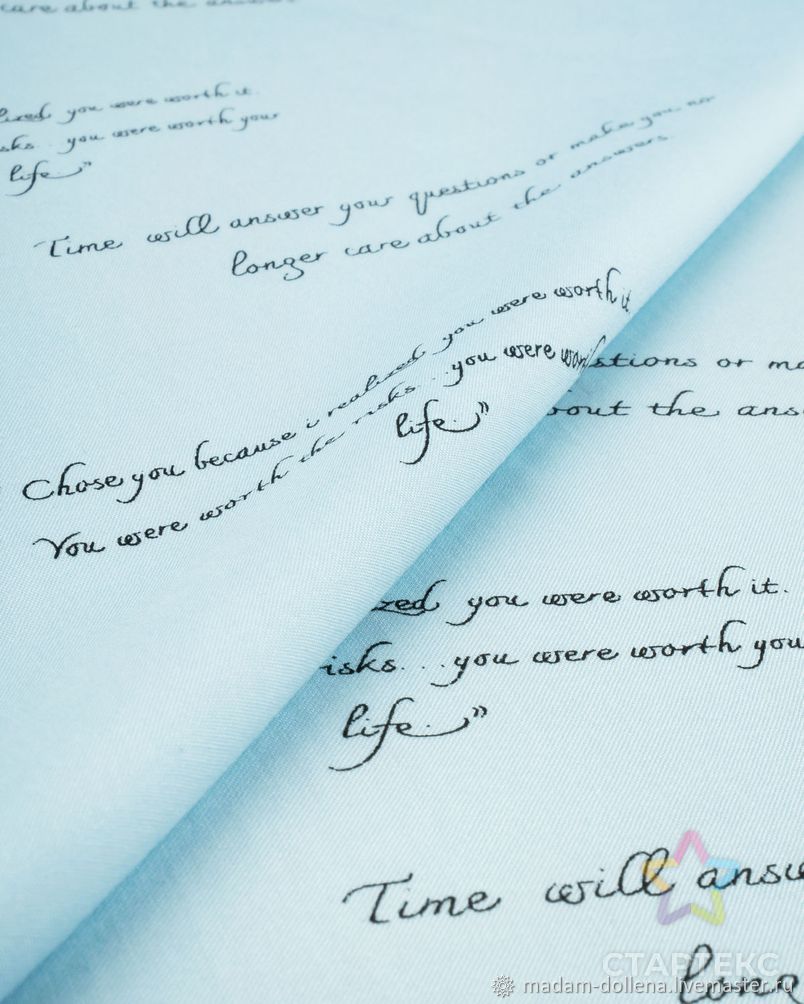 care about the answers
lized you were worth it.
isks... you were worth your
life."
Time will answer your questions or make you no
longer care about the answers.
Chose you because i realized you were worth it.
You were worth the risks... you were wor
life."
stions or ma
bout the answ
zed you were worth it.
isks... you were worth you
life."
Time will answ
long
СТАРТЕКС
madam-dollena.livemaster.ru